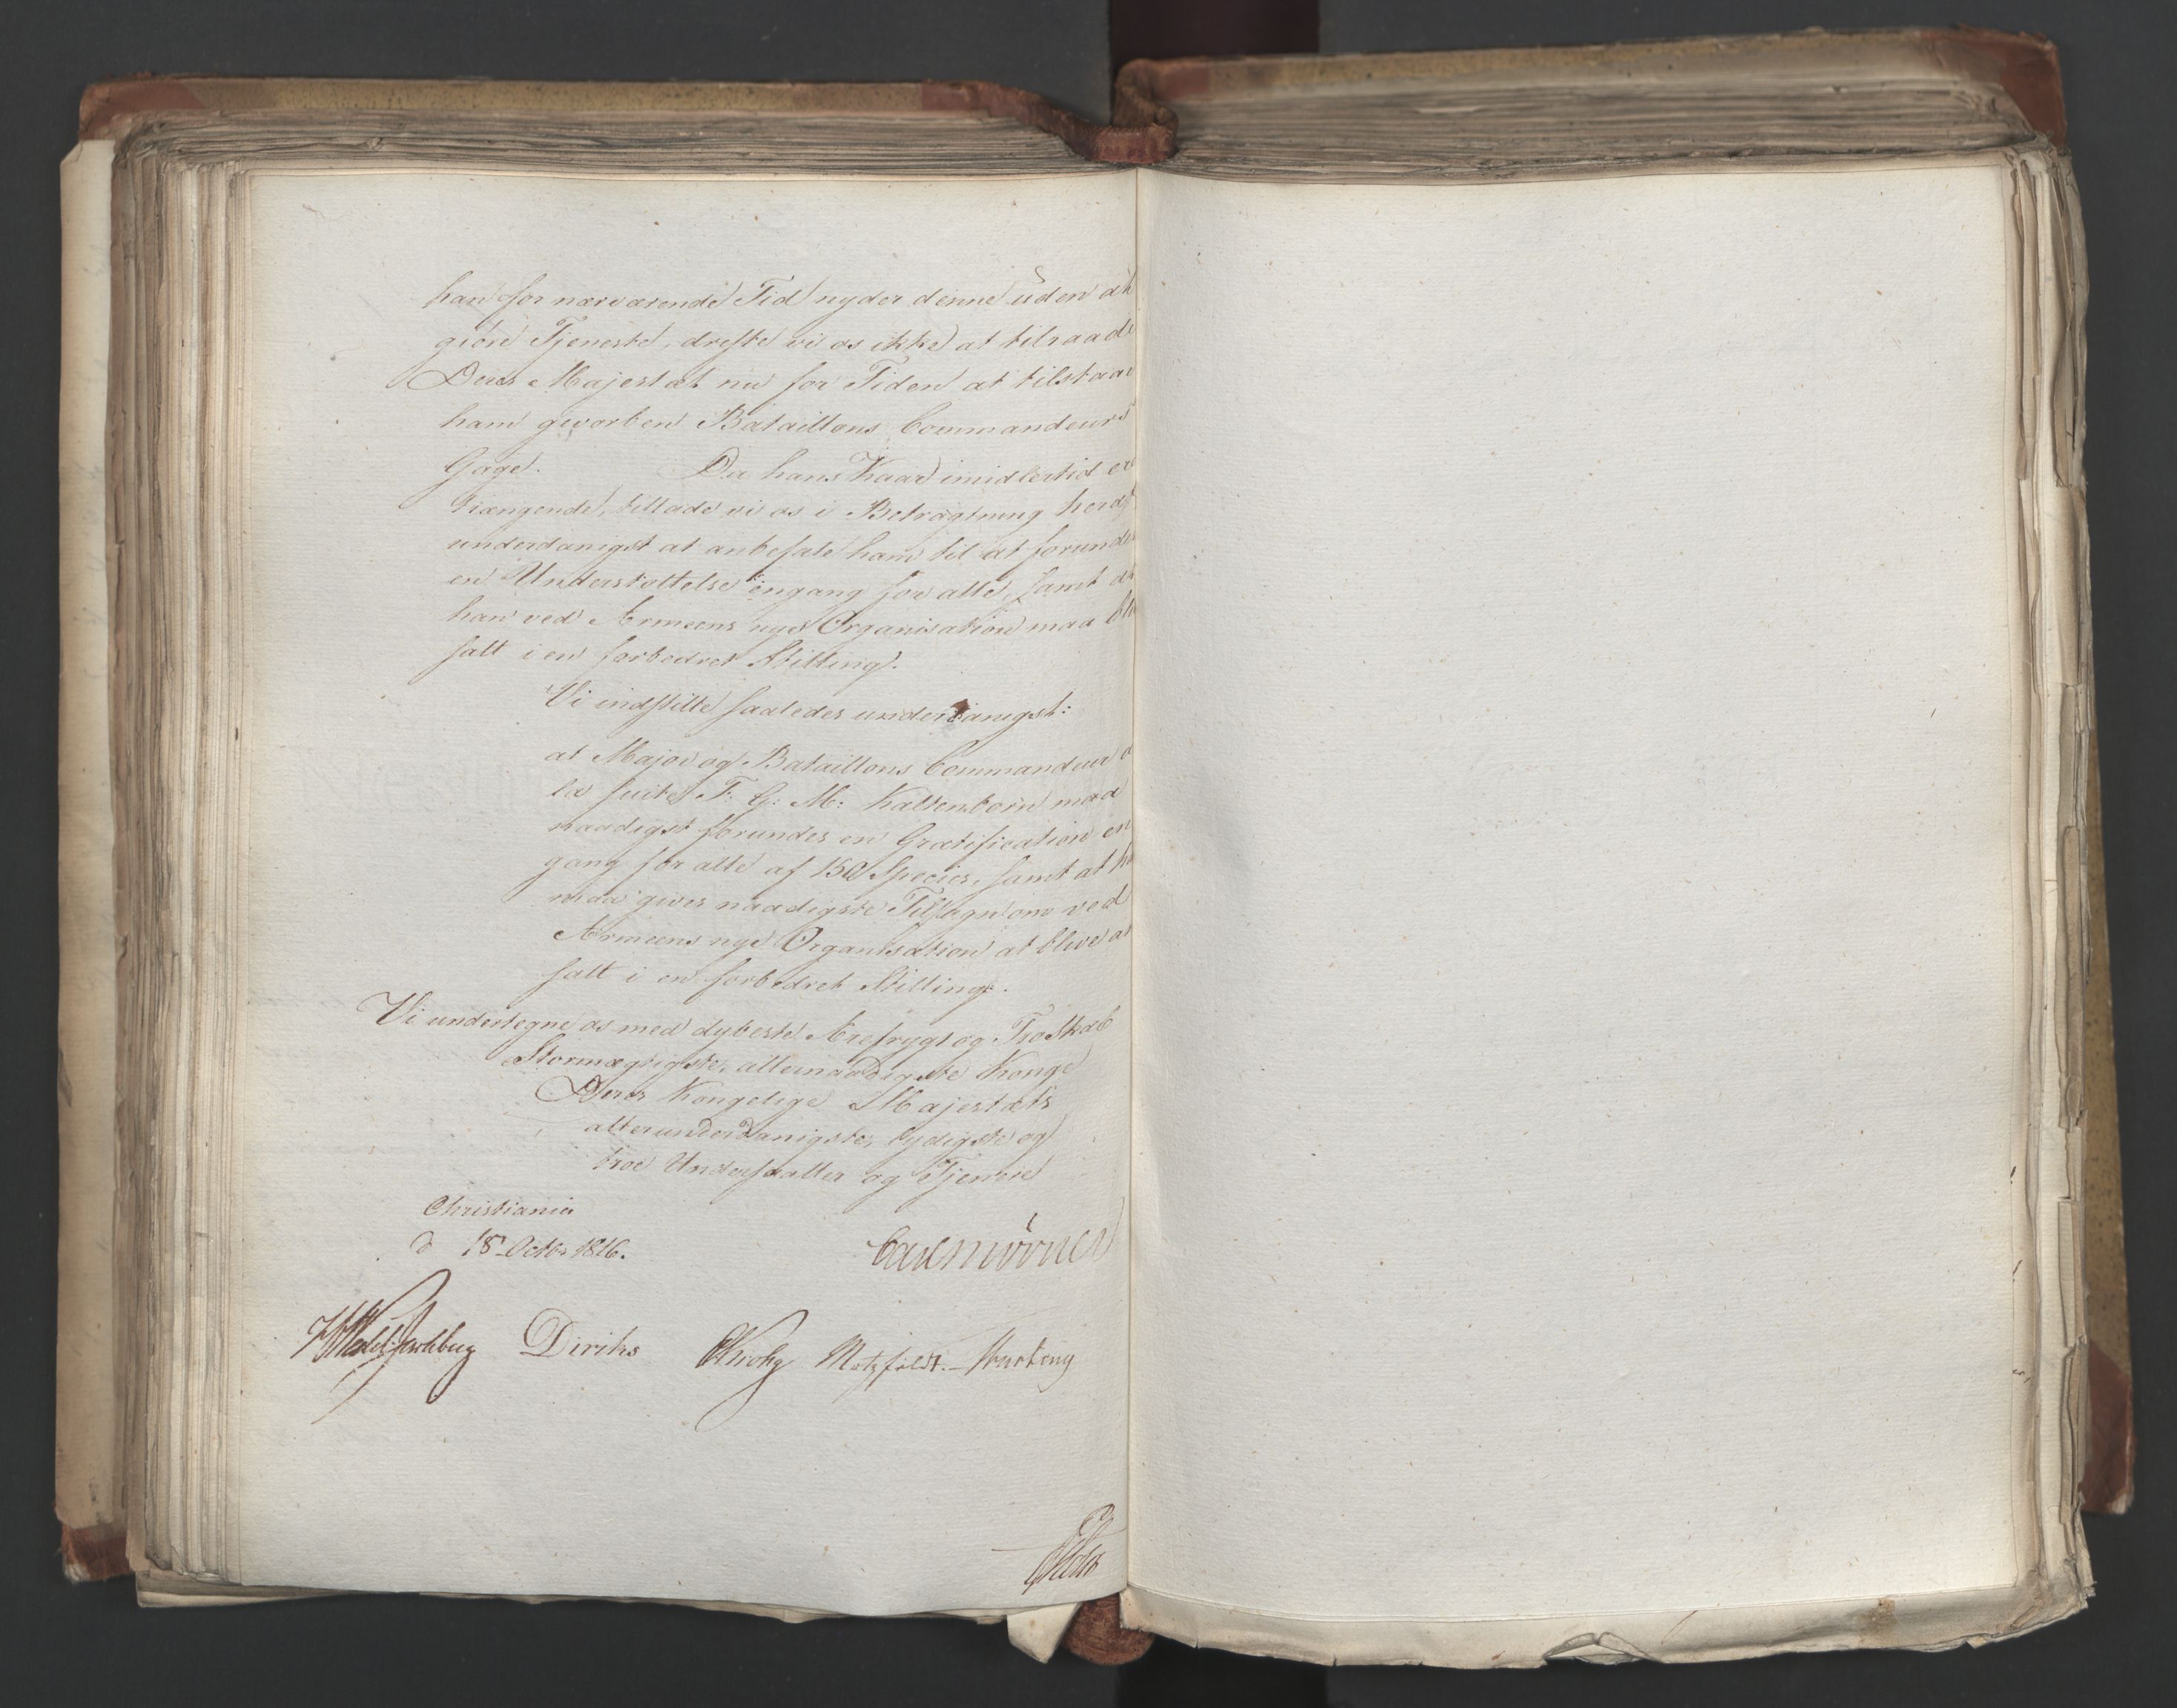 han for nærværende Tid nyder denne uden at
giöre Tjeneste, driste vi os ikke at tilraade
Deres Majestæt nu for Tiden at tilstaae
ham gevorben Bataillons Commandeurs
Gage. Da hans Kaar imidlertid ere
trængende, tillade vi os i Betragtning heraf
underdanigst at anbefale ham til at forundes
en Understøttelse engang for alle, samt at
han ved Armeens nye Organisation maa blive
satt i en forbedret Stilling.
Vi indstille saaledes underdanigst:
at Major og Bataillons Commandeur a
la suite F: G: M: Kaltenborn maa
naadigst forundes en Gratification en
gang for alle af 150 Species, samt at ham
maa gives naadigste Tilsagn om ved
Armeens nye Organisation at blive an
satt i en forbedret Stilling.
Vi undertegne os med dybeste Ærefrygt og Troskab
Stormægtigste, allernaadigste Konge
Deres Kongelige Majestæts
allerunderdanigste, lydigste og
troe Undersaatter og Tjenere
Christiania
d 18 Octbr 1816.
Carl Mörner
HWedel Jarlsberg Diriks CKrohg Motzfeldt. Hartung